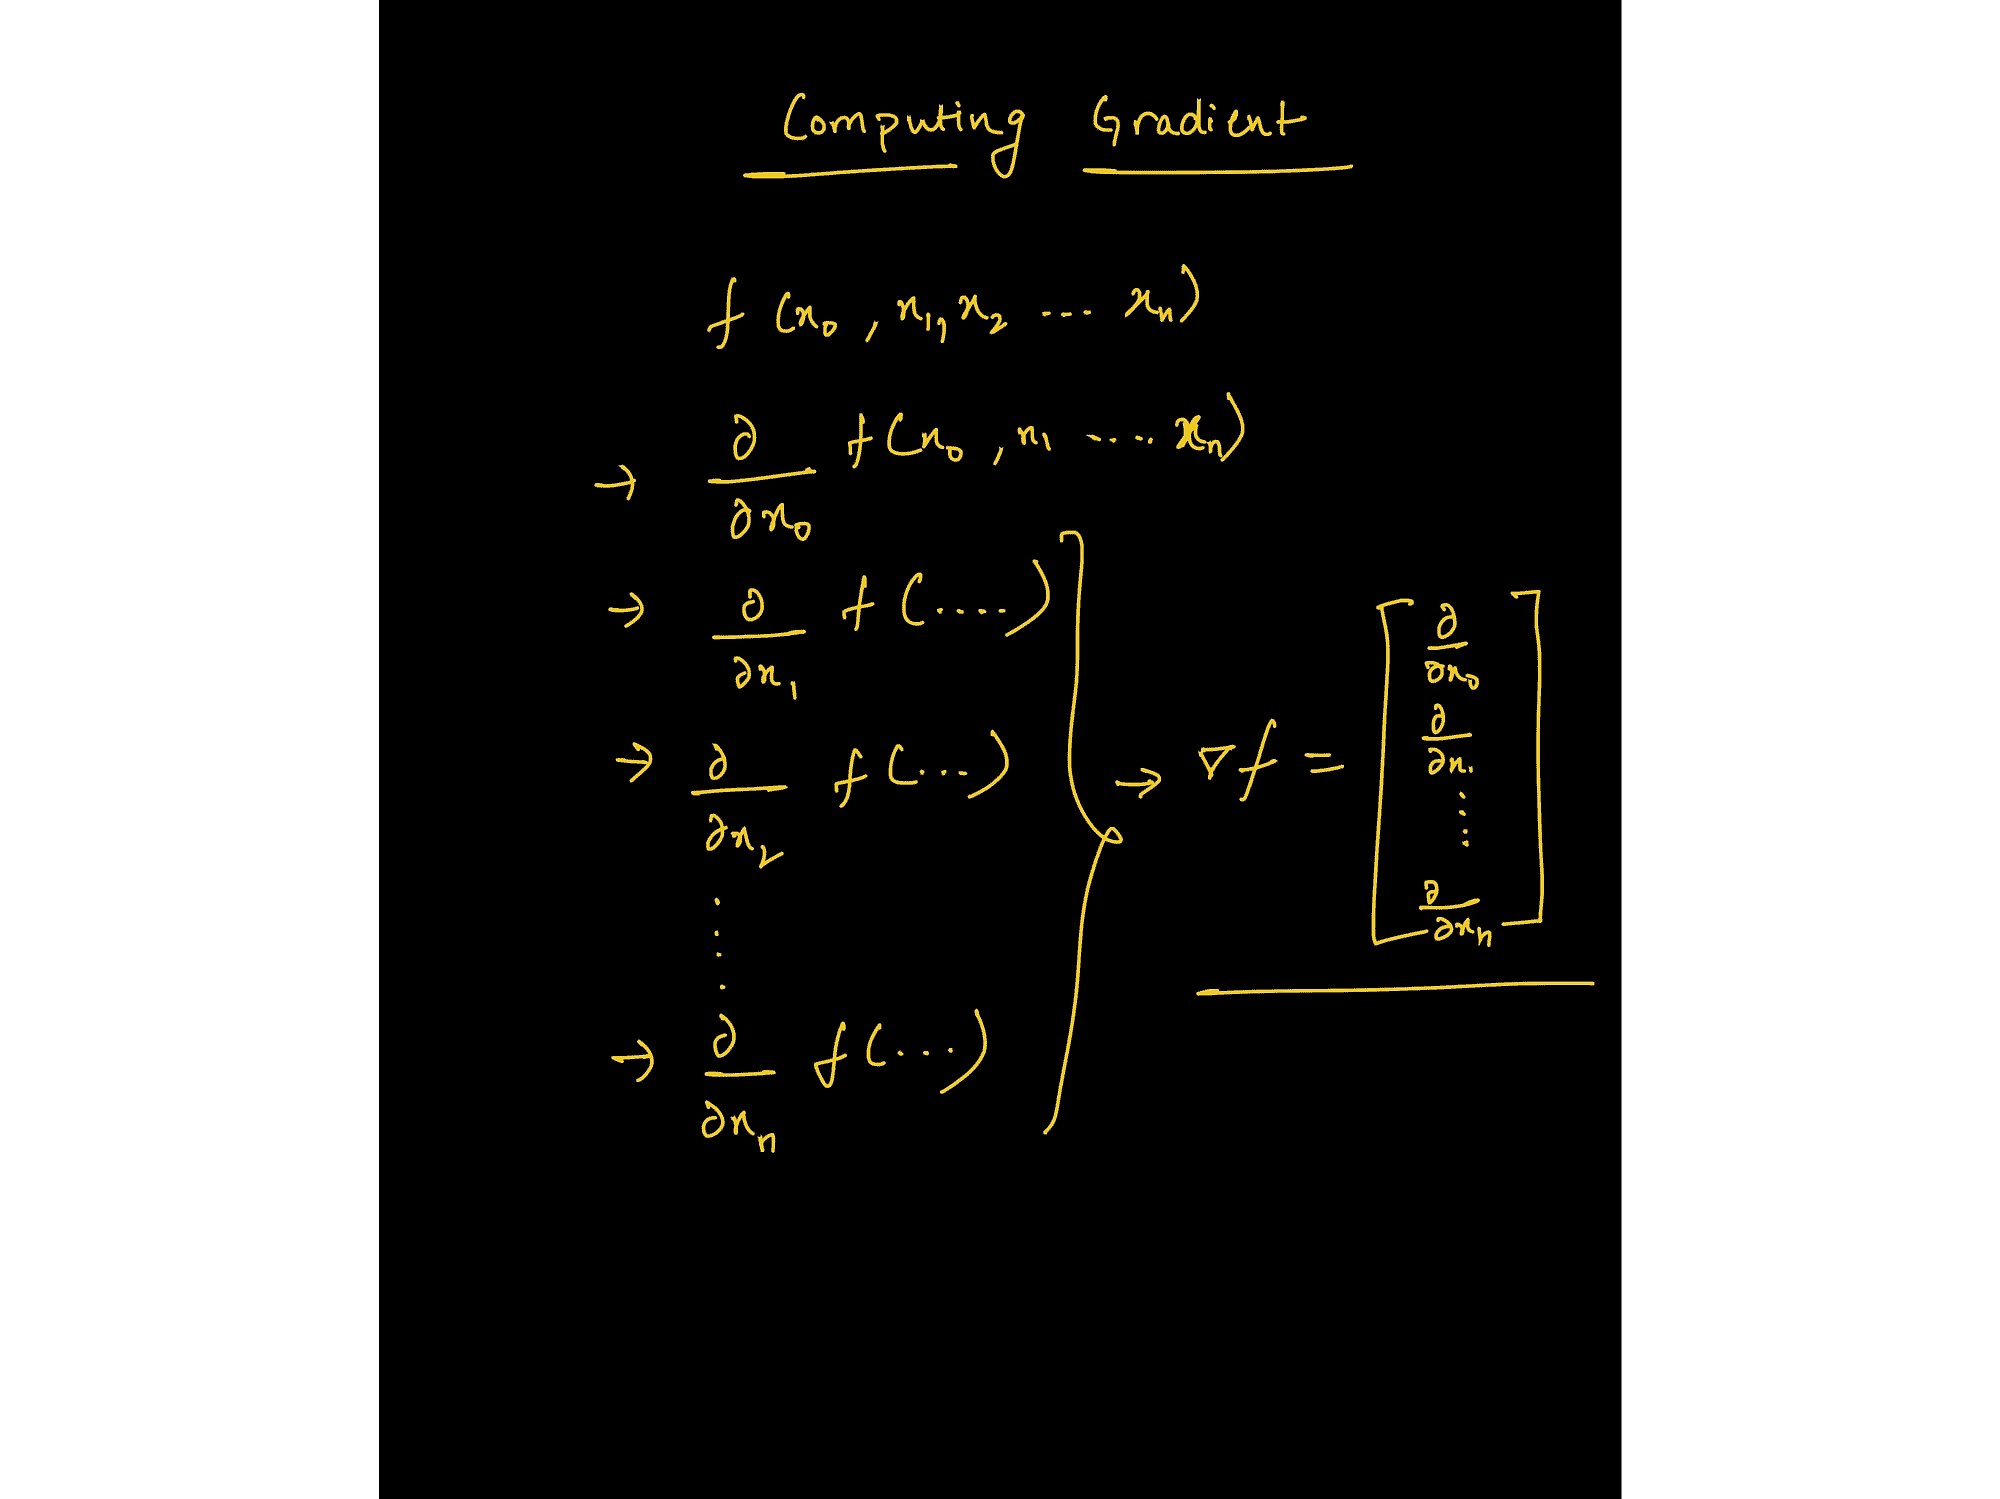 Computing Gradient
f (x₀, x₁, x₂ ... xₙ)
→ ∂/∂x₀ f(x₀, x₁ .... xₙ)
→ ∂/∂x₁ f(.....)
→ ∂/∂x₂ f(...)
⋮
→ ∂/∂xₙ f(...)
→ ∇f = [ ∂/∂x₀
∂/∂x₁
⋮
∂/∂xₙ ]